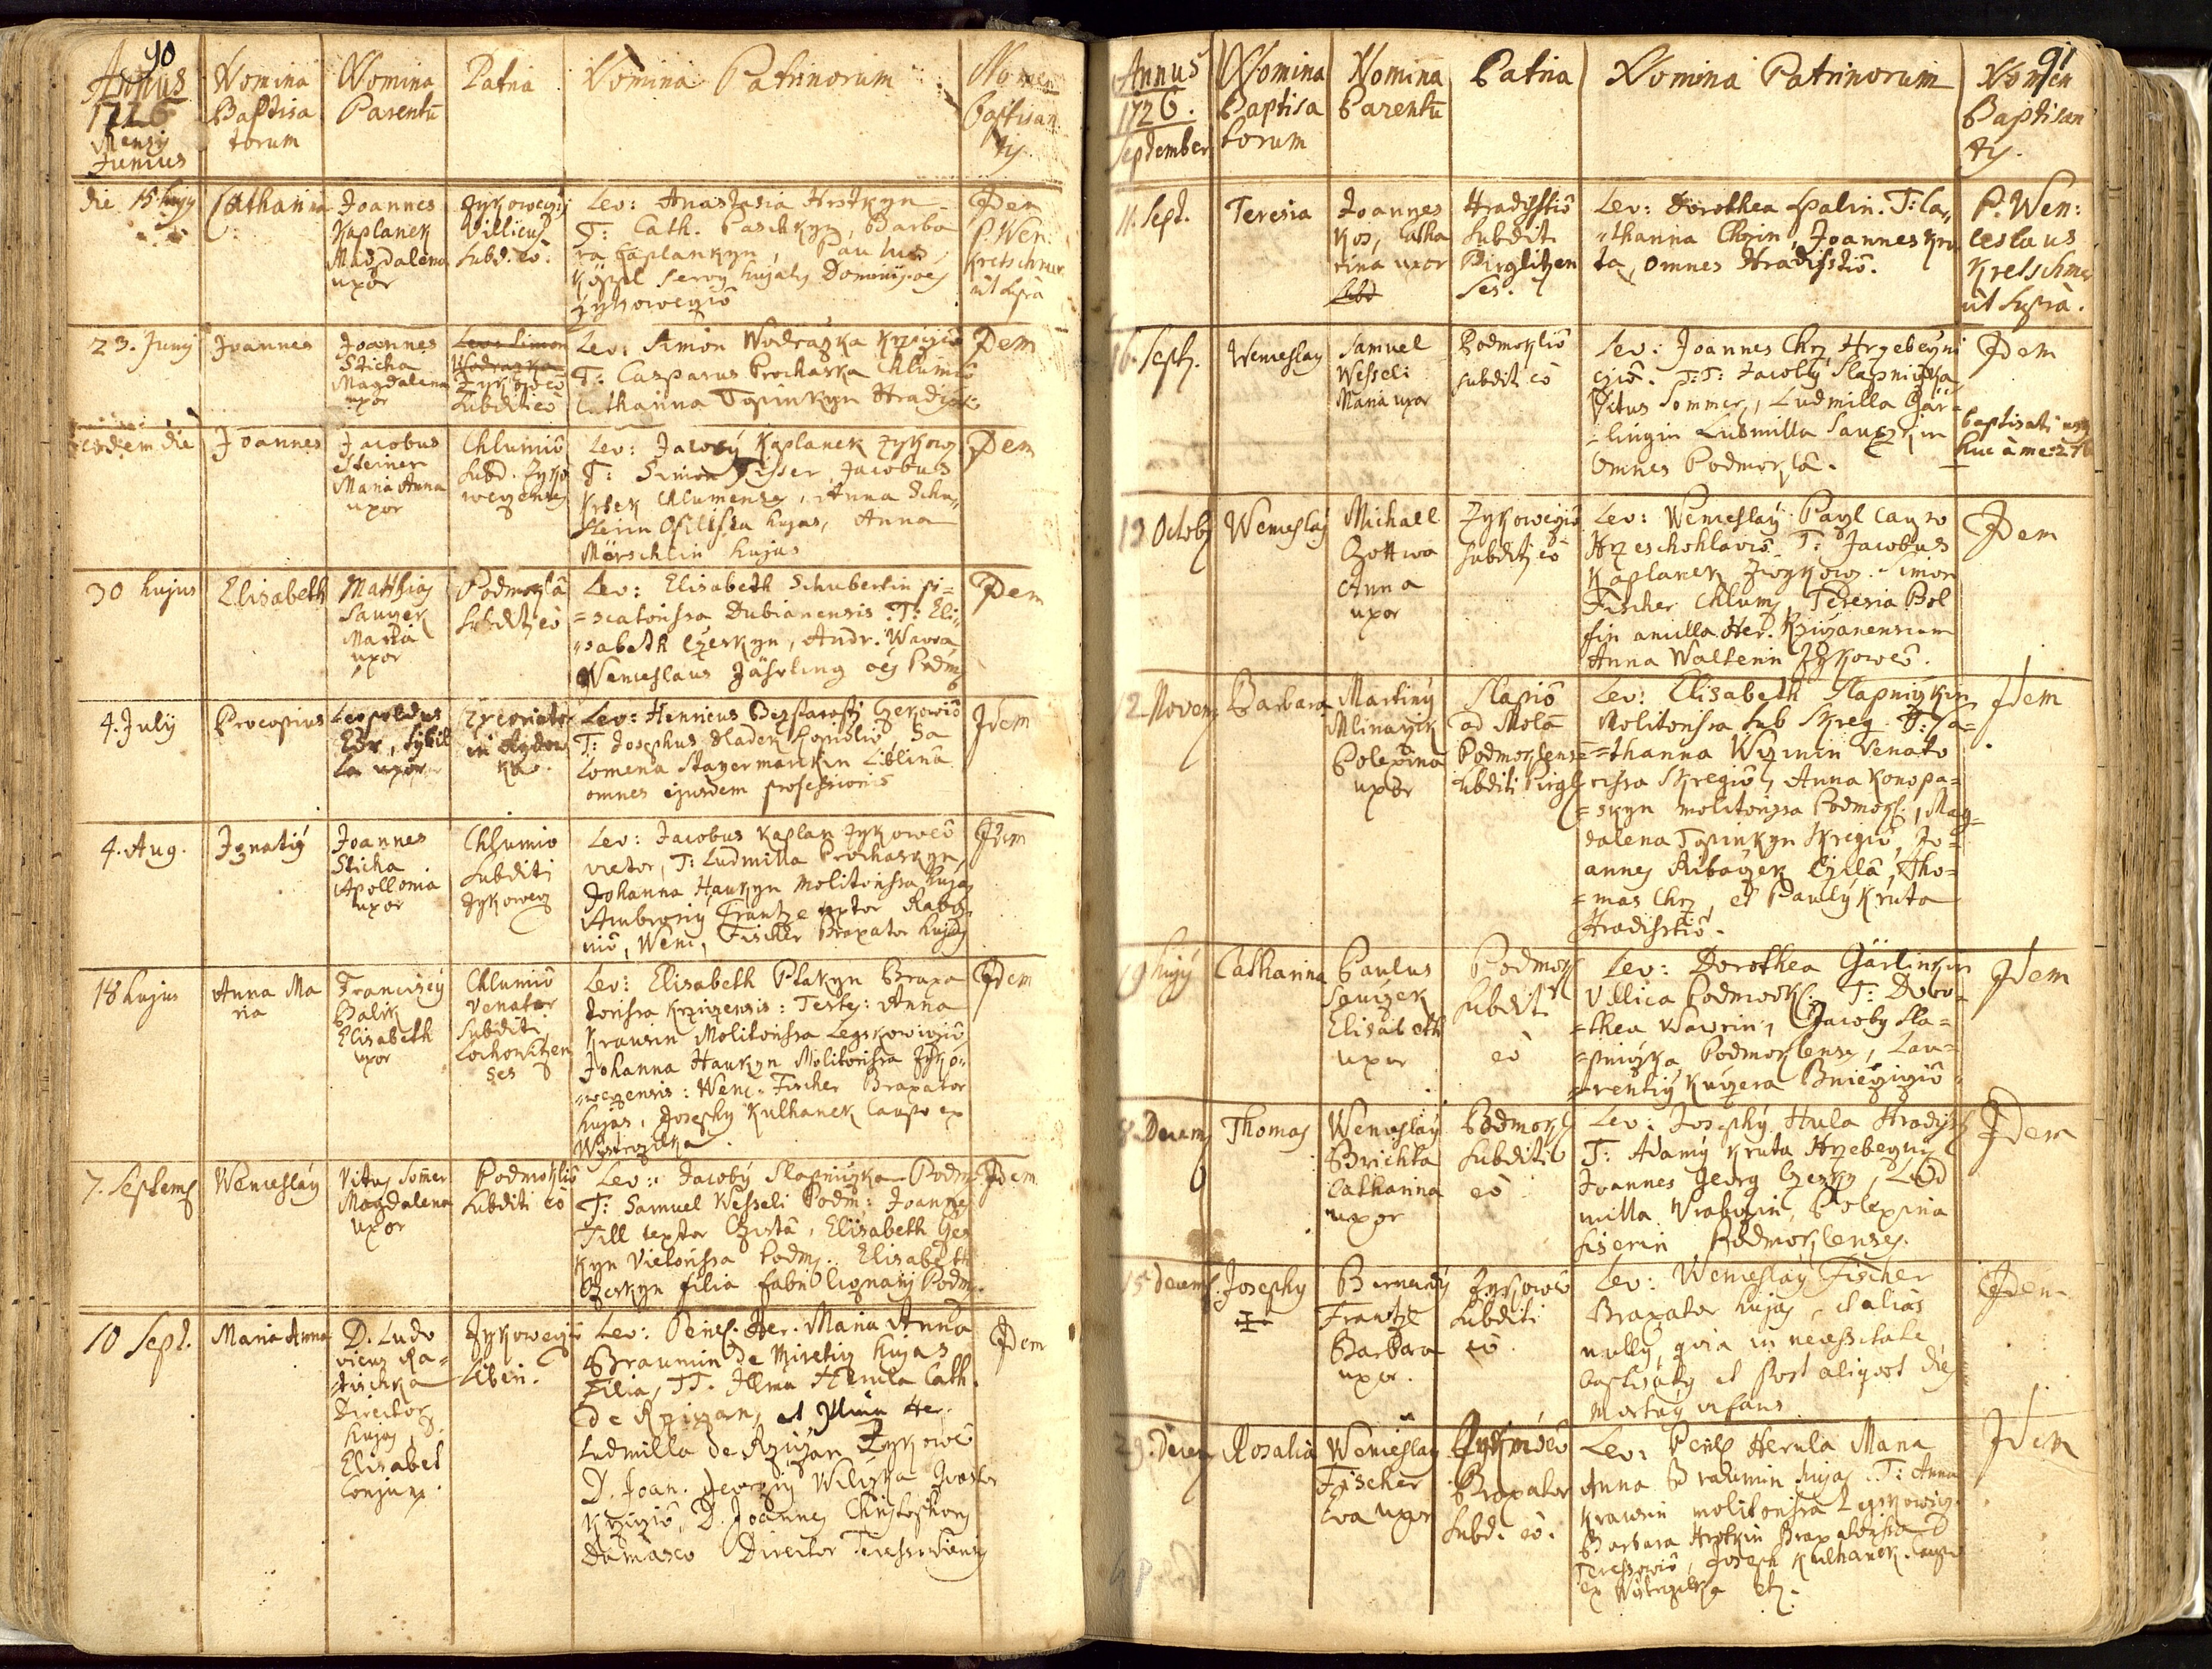 90
Annus
1726
Mensis
Junius
Nomina
Baptisa
torum
Nomina
Parentū
Patria
Nomina Patrinorum
Nomen
Baptisan
tis
die 15 hujus
Catharina
Joannes
Kaplanek
Magdalena
uxor
Zykowegii
Villicus
Subd. eō.
Lev: Anastasia Hrstkyn
T: Cath. Paschkyn, Barba
ra Caplankyn, Paulus
Kysel servus hujatis Dominij oēs
Zykowegiō
Idem
P. Wen:
Kretschmer
ut supra
23. Junij
Joannes
Joannes
Sticha
Magdalena
uxor
Lev: Simon
Wodrazka
Zykowecō
Subditi eō
Lev: Simon Wodrażka Krzigiō
T: Casparus Prochaska Chlumiō
Catharina Topinkyn Hradissk:
Idem
eodem die
Joannes
Jacobus
Steiner
Maria Anna
uxor
Chlumiō
Subd. Zyko
wegenses
Lev: Jacobȳ Kaplanek Zykow
T: Simon Fisser Jacobus
Krsek Chlumensis, Anna Schu
sterin hujas, Anna
Mörschlin hujas
Idem
30 hujus
Elisabeth
Matthias
Sauger
Maria
uxor
Podmoklâ
Subditi eō
Lev: Elisabeth Schubertin pi=
=scatorissa Dubianensis. T: Eli=
=sabeth Czerkyn, Andr. Wawra,
Wenceslaus Jährling oēs Podm
Idem
4. July
Procopius
Leopoldus
Edr, Sybil
la uxor
in
Lev: Henricus Bezstarosti Czerowiō
T: Josephus Sladek, Sa
lomena Stayermarkin Liblinâ
omnes ejusdem professionis
Idem
4. Aug.
Ignatiȳ
Joannes
Sticha
Apollonia
uxor
Chlumio
Subditi
Zykoweg
Lev: Jacobus Kaplan Zykowcō
vietor, T: Ludmilla Prochaskyn,
Johanna Haukyn Molitorissa hujas
Ambrosiȳ Frantze textor Rakō
niō, Wenc, Fischer Braxator hujas
Idem
18 hujus
Anna Ma
ria
Franciscȳ
Balik
Elisabeth
uxor
Chlumiō
Venator
Subditi
Lochowitzen
ses
Lev: Elisabeth Ptakyn Braxa
torissa Krzizensis: Testes: Anna
Krausin Molitorissa Legskowigiō
Johanna Haukyn Molitorissa Zyko=
=wegensis: Wenc. Fischer Braxator
hujas, Josephȳ Kulhanek Caupo ex
Wystrczilka
Idem
7. Septemb
Wenceslaȳ
Vitus Som̄er
Magdalena
uxor
Podmokliō
Subditi eō
Lev: Jacobȳ Slapniczka Podm:
T: Samuel Wesseli Podm: Joannes
Till textor Czistâ, Elisabeth Ges
kyn Vietorissa Podm: Elisabeth
Czerkyn filia fabri lignarij Podm.
Idem
10 Sept.
Maria Anna
D. Ludo
vicus Ra=
dischka
Director
hujas, D.
Elisabet
Conjunx.
Zykowegiō
Liberi.
Lev: Penlis. Her. Maria Anna
Braumin de Miretig hujas
filia, TT. Illma Herula Cath.
de Rziczan, et Illma Her.
Ludmilla de Rziczan Zykowcō
D. Joan. Georgiȳ Weliczka Quæstor
Krzigiō, D. Joannes Christophorus
Damasco Director Teressowiensis
Idem
91
Annus
1726.
September
Nomina
Baptisa
torum
Nomina
Parentū
Patria
Nomina Patrinorum
Nomen
Baptisan
tis.
11. Sept.
Teresia
Joannes
Kos, Catha
rina uxor
Hradisstiō
Subditi
Pirglitzen
ses.
Lev: Dorothea Palin. T: Ca=
=tharina Chrzin, Joannes Kru
ta, omnes Hradisstiō.
P. Wen:
ceslaus
Kretschmer
ut supra.
16. Sept.
Wenceslaȳ
Samuel
Wesseli
Maria uxor
Podmokliō
Subditi eō
Lev: Joannes Chrz Hrzebeczni
cziō. T:T: Jacobȳ Slapniczka
Vitus Sommer, Ludmilla Gär=
=lingin Ludmilla Saugkyn
Omnes Podmoklâ.
Idem
Baptisati usq
huc à me: 276
13 Octob
Wenceslaȳ
Michael
Gottwa
Anna
uxor
Zykowegiō
Subditi eō
Lev: Wenceslaȳ Paul caupo
Hrzeschohlaviō. T: Jacobus
Kaplanek Zykow. Simon
Fischer Chlum, Teresia Pol
fin ancilla Her. Krziczanensium
Anna Walterin Zykowcō.
Idem
2. Novem
Barbara
Martinȳ
Mlinarzek
Polexina
uxor
Slapiō
ad Molā
Podmoklensē
subditi Pirgl
Lev: Elisabeth Slapniczkin
Molitorissa sub Skreg. T: Ca=
=tharina Wirnin Venato
rissa Skregiō, Anna Konopa=
=skyn molitorissa Podmokl, Mag=
dalena Topinkyn Skregiō, Jo=
annes Ribarzek Czilâ, Tho=
=mas Chrz, et Paulȳ Kruta
Hradisstiō.
Idem
19 hujȳ
Catharina
Paulus
Saugek
Elisabeth
uxor
Podmokl
Subditi
eō
Lev: Dorothea Gärlinkin
Villica Podmokl. T: Doro=
=thea Wawrin, Jacobȳ Sla=
=pniczka Podmoklenses, Lau=
=rentiȳ Kuczera Bniezigiō
Idem
8. Decemb
Thomas
Wenceslaȳ
Brichta
Catharina
uxor
Podmokl
Subditi
eō
Lev: Josephȳ Hula Hradisst
T: Adamȳ Kruta Hrzebeczni
Joannes Georg Czerny, Lud
milla Wrabczin, Polexina
Fiserin Podmoklenses.
Idem
15 Decemb.
Josephȳ
Bernardȳ
Frantze
Barbara
uxor.
Zykowcō
Subditi
eō.
Lev: Wenceslaȳ Fischer
Braxator hujas, et alias
nullȳ quia in necessitate
baptisatȳ et post aliquot dies
mortuȳ infans
Idem
29. Decem
Rosalia
Wenceslaȳ
Fischer
Eva uxor
Zykowcō
Braxator
Subd. eō.
Lev: Penls Herula Maria
Anna Braumin hujas. T: Anna
Krausin molitorissa Legskowig.
Barbara Hrstkin Braxatorissa
Teressowiō, Joseph Kulhanek, Caupo
ex Wistrczilka etc.
Idem